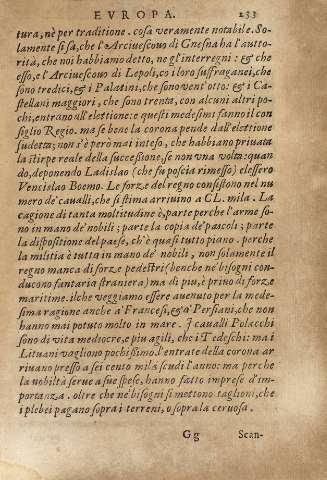 EVROPA. 233
tura, nè per traditione. cosa veramente notabile. So-
lamente si sà, che l'Arciuescouo di Gnesna ha l'autto-
rità, che noi habbiamo detto, ne gl'interregni: & che
esso, e l'Arciuescouo di Lepoli, co i loro suffraganei, che
sono tredici, & i Palatini, che sono vent'otto: & i Ca-
stellani maggiori, che sono trenta, con alcuni altri po-
chi, entrano all'elettione: e questi medesimi fanno il con
siglio Regio. ma se bene la corona pende dall'elettione
sudetta; non s'è però mai inteso, che habbiano priuata
la stirpe reale della successione, se non vna volta: quan
do, deponendo Ladislao (che fu poscia rimesso) elessero
Vencislao Boemo. Le forze del regno consistono nel nu
mero de' caualli, che si stima arriuino a CL. mila. La
cagione di tanta moltitudine è, parte perche l'arme so-
no in mano de' nobili; parte la copia de' pascoli; parte
la dispositione del paese, ch'è quasi tutto piano. perche
la militia è tutta in mano de' nobili, non solamente il
regno manca di forze pedestri (benche ne' bisogni con-
ducono fantaria straniera) ma di piu, è priuo di forze
maritime. ilche veggiamo essere auenuto per la mede-
sima ragione anche a' Francesi, & a' Persiani, che non
hanno mai potuto molto in mare. I caualli Polacchi
sono di vita mediocre, e piu agili, che i Tedeschi: ma i
Lituani vagliono pochissimo. l'entrate della corona ar
riuano presso a sei cento mila scudi l'anno: ma perche
la nobiltà serue a sue spese, hanno fatto imprese d'im-
portanza. oltre che ne' bisogni si mettono taglioni, che
i plebei pagano sopra i terreni, o sopra la ceruosa.
Gg Scan-